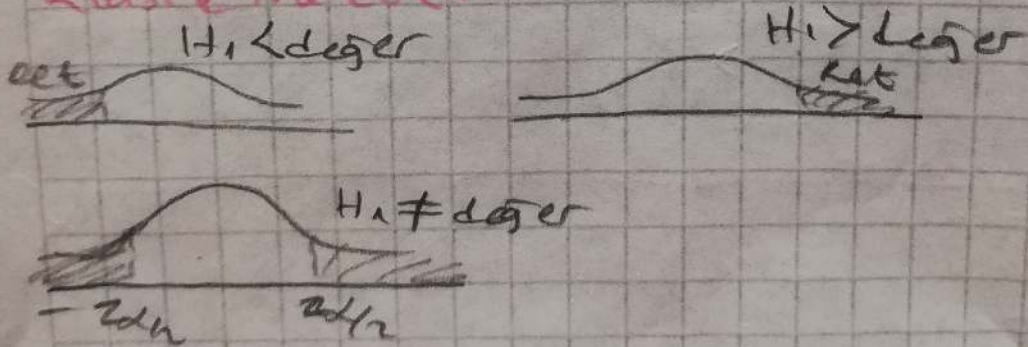 H₁ < değer
H₁ > değer
ret
Ret
H₁ ≠ değer
- Zα/2
Zα/2